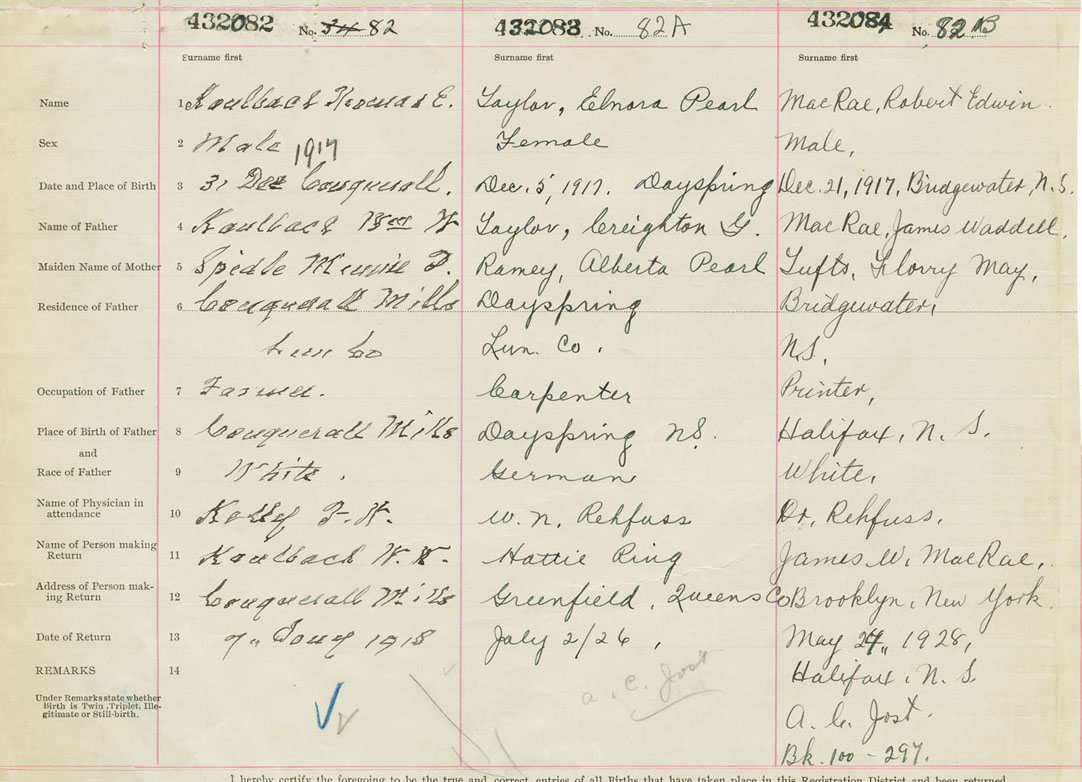 432082 No. 34 82 432083 No. 82A 432084 No. 82B
Surname first Surname first Surname first
Name 1 Kaulbach E. Taylor, Elnora Pearl MacRae, Robert Edwin.
Sex 2 Male Female Male,
1917
Date and Place of Birth 3 31 Dec Conquerall. Dec. 5, 1917. Dayspring Dec. 21, 1917, Bridgewater, N.S.
Name of Father 4 Kaulbach Wm W Taylor, Creighton G. MacRae, James Waddell.
Maiden Name of Mother 5 Spidle Minnie D. Ramey, Alberta Pearl Tufts, Florry May,
Residence of Father 6 Conquerall Mills Dayspring Bridgewater,
Lun Co Lun. Co. N.S.
Occupation of Father 7 Farmer. Carpenter Printer,
Place of Birth of Father 8 Conquerall Mills Dayspring N.S. Halifax, N. S.
and
Race of Father 9 White. German White,
Name of Physician in
attendance 10 F. W. N. Rehfuss Dr. Rehfuss.
Name of Person making
Return 11 Kaulbach W. W. Hattie Ring James W. MacRae,
Address of Person mak-
ing Return 12 Conquerall Mills Greenfield, Queens Co Brooklyn, New York.
Date of Return 13 7" 1918 July 2/26, May 24, 1928,
REMARKS 14 Halifax, N. S.
Under Remarks state whether
Birth is Twin, Triplet, Ille-
gitimate or Still-birth.
a. c. Jost A. C. Jost.
Bk. 100 - 297.
I hereby certify the foregoing to be the true and correct entries of all Births that have taken place in this Registration District and been returned